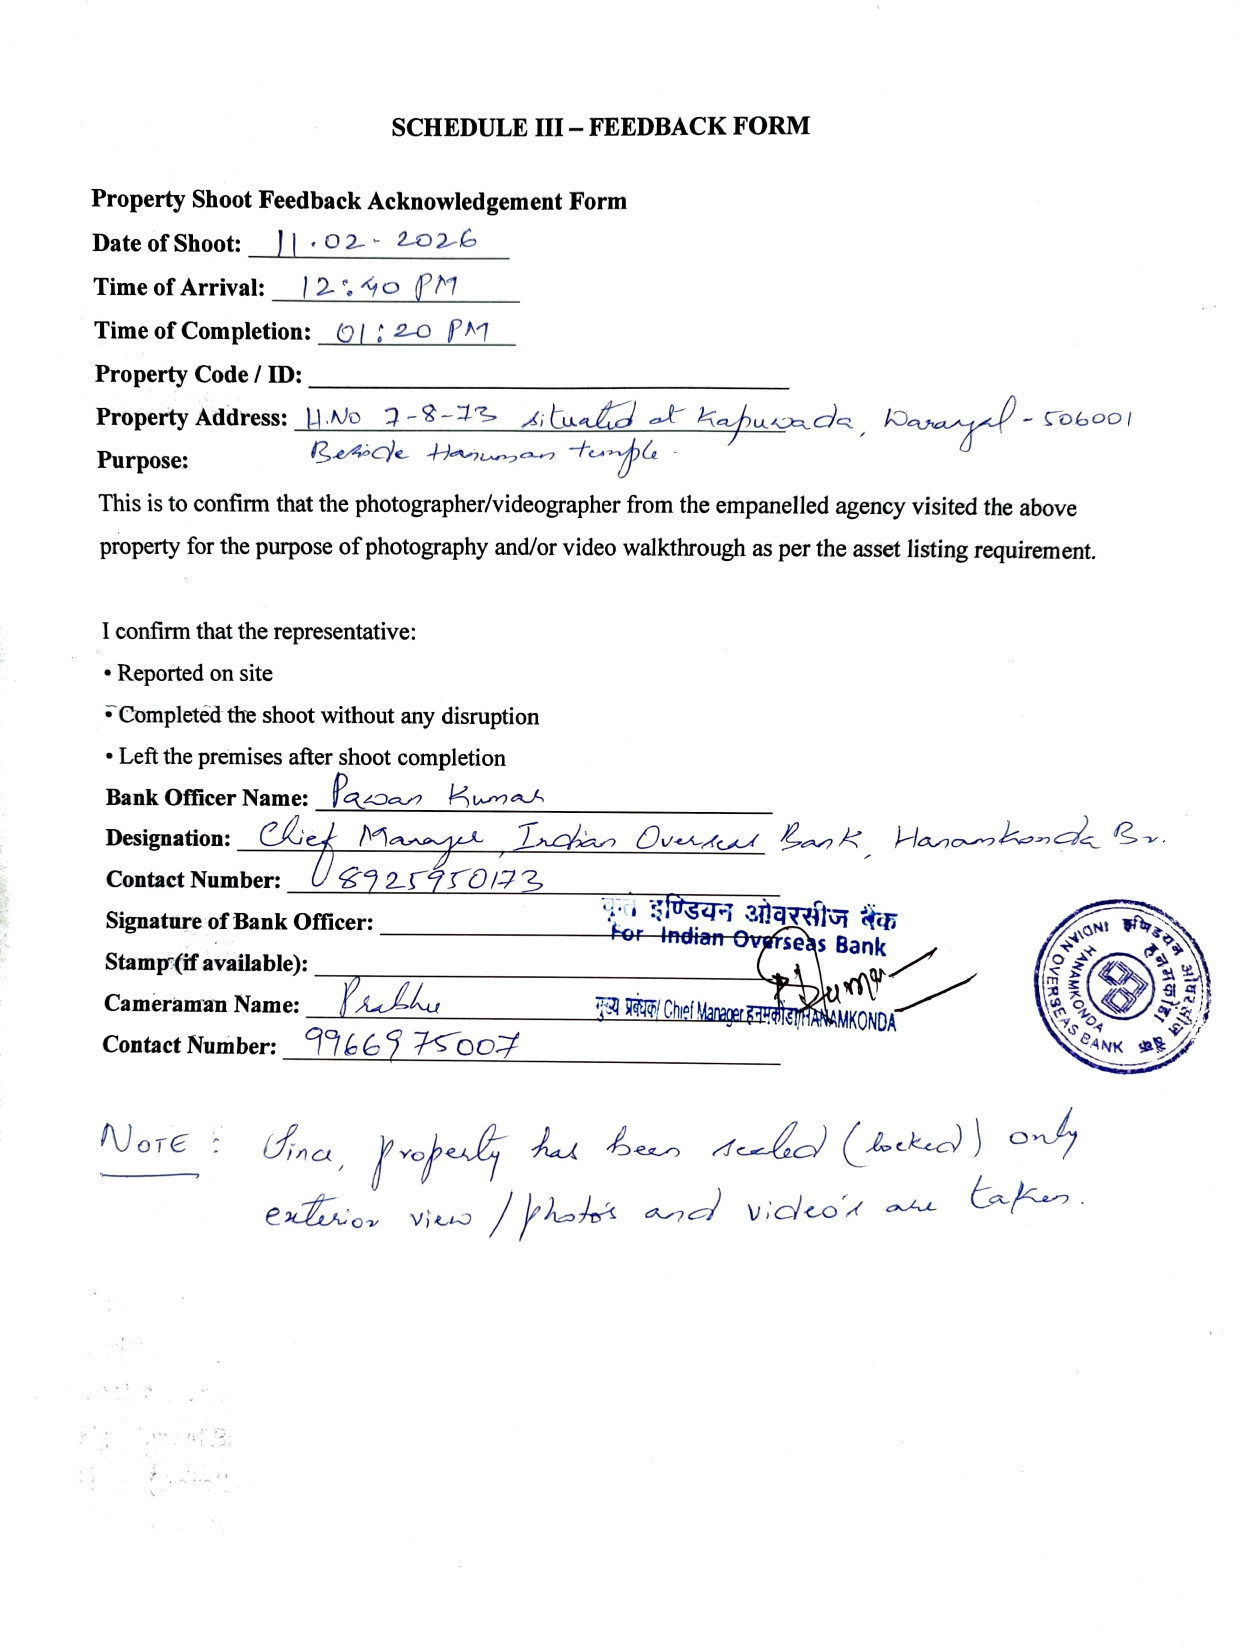 SCHEDULE III – FEEDBACK FORM
Property Shoot Feedback Acknowledgement Form
Date of Shoot: 11.02-2026
Time of Arrival: 12:40 PM
Time of Completion: 01:20 PM
Property Code / ID:
Property Address: H.No 7-8-73 situated at Kapuwada, Warangal - 506001
Beside Hanuman temple.
Purpose:
This is to confirm that the photographer/videographer from the empanelled agency visited the above
property for the purpose of photography and/or video walkthrough as per the asset listing requirement.
I confirm that the representative:
• Reported on site
• Completed the shoot without any disruption
• Left the premises after shoot completion
Bank Officer Name: Pawan Kumar
Designation: Chief Manager, Indian Overseas Bank, Hanamkonda Br.
Contact Number: 8925950173
Signature of Bank Officer:
कृते इण्डियन ओवरसीज बैंक
For Indian Overseas Bank
Stamp (if available):
Cameraman Name: Prabhu
मुख्य प्रबंधक/ Chief Manager हनमकोंडा/HANAMKONDA
Contact Number: 9966975007
इण्डियन ओवरसीज बैंक
हनमकोंडा
INDIAN OVERSEAS BANK
HANAMKONDA
NOTE : Since, property has been sealed (locked) only
exterior view / photo's and video's are taken.